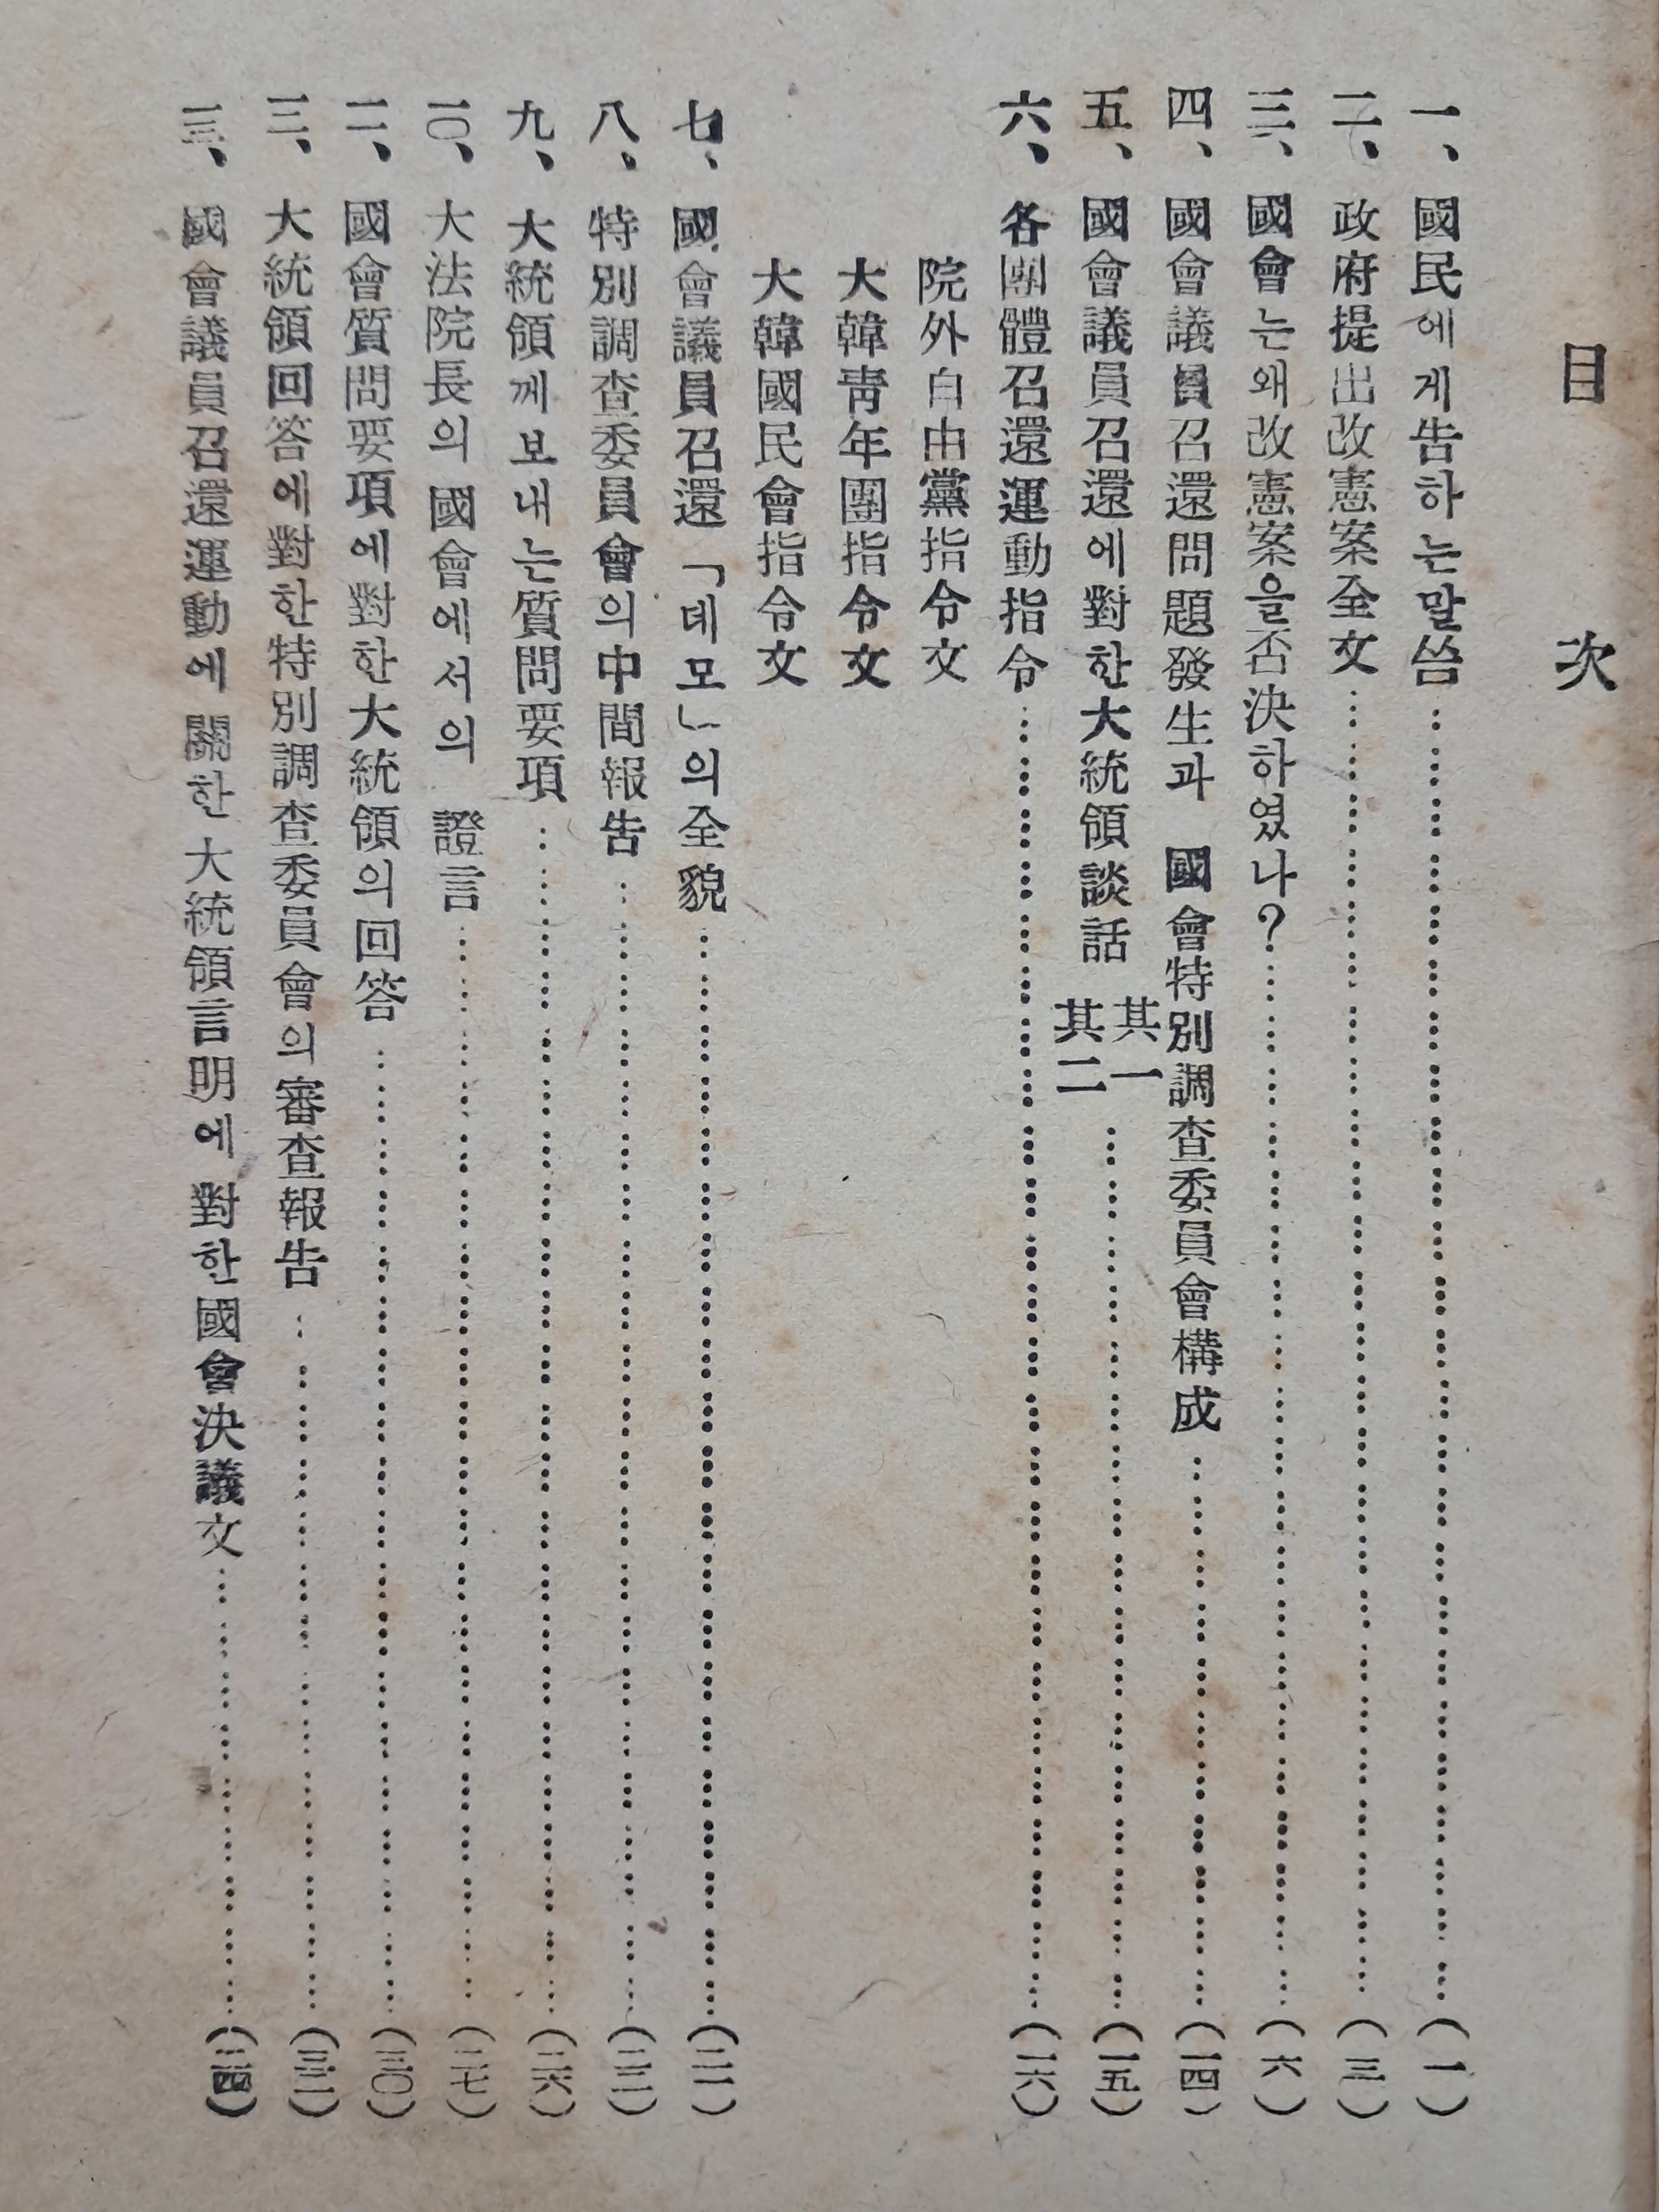 目次
一、國民에게告하는말씀……(一)
二、政府提出改憲案全文……(三)
三、國會는왜改憲案을否決하였나?……(六)
四、國會議員召還問題發生과 國會特別調査委員會構成……(一四)
五、國會議員召還에對한大統領談話 其一 其二……(一五)
六、各團體召還運動指令……(一六)
院外自由黨指令文
大韓靑年團指令文
大韓國民會指令文
七、國會議員召還「데모」의全貌……(二一)
八、特別調査委員會의中間報告……(二二)
九、大統領께보내는質問要項……(二六)
一〇、大法院長의國會에서의 證言……(二七)
一一、國會質問要項에對한大統領의回答……(三〇)
一二、大統領回答에對한特別調査委員會의審査報告……(三二)
一三、國會議員召還運動에關한大統領言明에對한國會決議文……(三四)